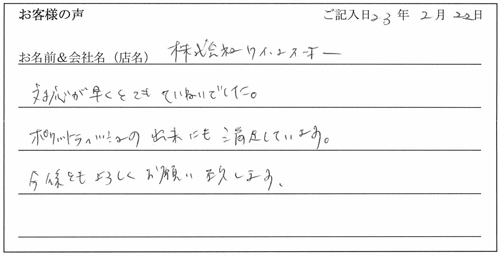 お客様の声 ご記入日23年2月22日
お名前&会社名(店名) 株式会社
対応が早くとてもていねいでした。
ポケットティッシュの出来にも満足しています。
今後ともよろしくお願い致します。